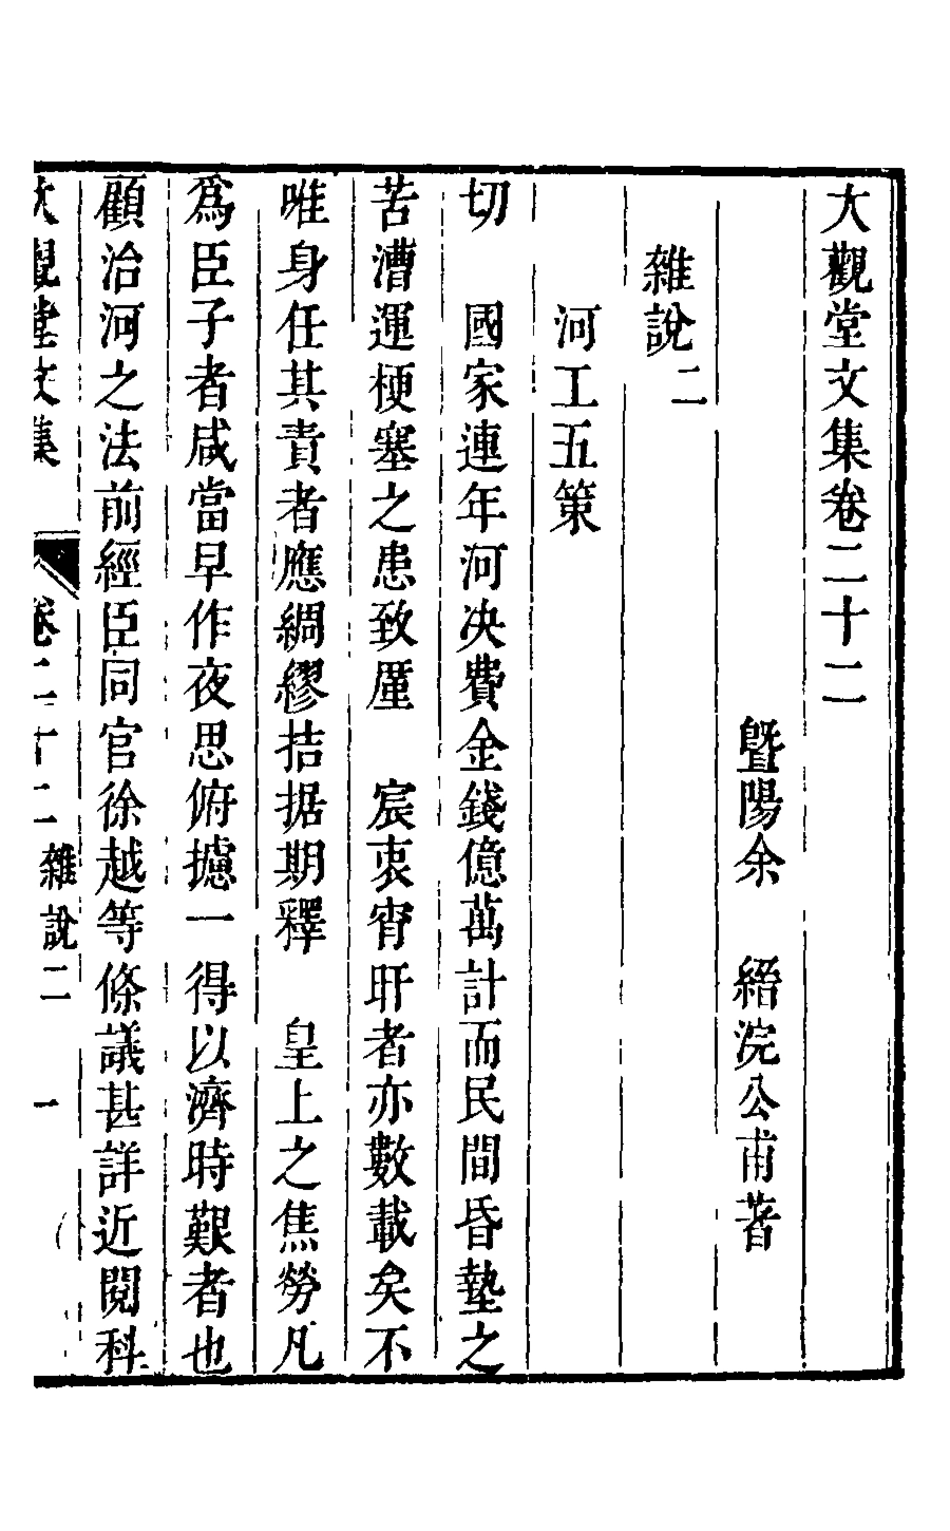 大觀堂文集卷二十二
暨陽余　縉浣公甫著
雜說二
河工五策
切　國家連年河決費金錢億萬計而民間昏墊之
苦漕運梗塞之患致厪　宸衷宵旰者亦數載矣不
唯身任其責者應綢繆拮据期釋　皇上之焦勞凡
為臣子者咸當早作夜思俯攄一得以濟時艱者也
顧治河之法前經臣同官徐越等條議甚詳近閱科
大觀堂文集　卷二十二　雜說二　一